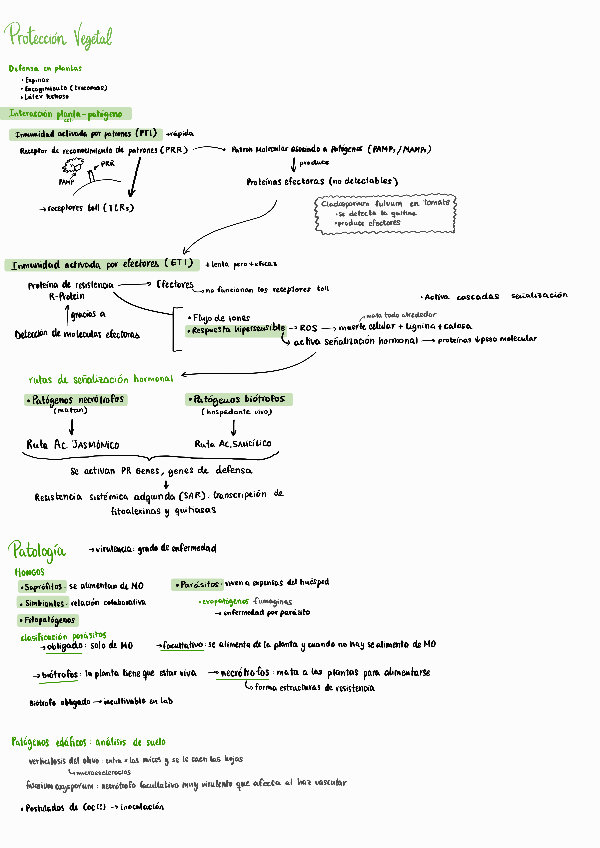 Protección Vegetal
Defensa en plantas
• Espinas
• Encogimiento (tricomas)
• Látex lechoso
Interacción planta-patógeno
Inmunidad activada por patrones (PTI) → rápida
Receptor de reconocimiento de patrones (PRR) → Patrón Molecular Asociado a Patógenos (PAMPs/MAMPs)
↓ produce
PRR
PAMP
Proteínas efectoras (no detectables)
→ receptores toll (TLRs)
Cladosporium fulvum en tomate
• se detecta la quitina
• produce efectores
Inmunidad activada por efectores (ETI) + lenta pero + eficaz
Proteína de resistencia → Efectores
R-Protein
→ no funcionan los receptores toll
• Activa cascadas señalización
↑ gracias a
Detección de moléculas efectoras
• Flujo de iones
mata todo alrededor
• Respuesta hipersensible → ROS → muerte celular + lignina + calosa
activa señalización hormonal → proteínas ↓ peso molecular
rutas de señalización hormonal
• Patógenos necrótrofos
(matan)
• Patógenos biótrofos
(hospedante vivo)
Ruta Ac. JASMÓNICO
Ruta Ac. SALICÍLICO
Se activan PR Genes, genes de defensa
↓
Resistencia sistémica adquirida (SAR): transcripción de
fitoalexinas y quitinasas
Patología → virulencia: grado de enfermedad
Hongos
• Saprófitos: se alimentan de MO
• Parásitos: viven a expensas del huésped
• Simbiontes: relación colaborativa
• Fitopatógenos
fumaginas
→ enfermedad por parásito
clasificación parásitos
→ obligado: solo de MO
→ facultativo: se alimenta de la planta y cuando no hay se alimenta de MO
→ biótrofos: la planta tiene que estar viva → necrótrofos: mata a las plantas para alimentarse
forma estructuras de resistencia
Biótrofo obligado → incultivable en lab
Patógenos edáficos: análisis de suelo
verticilosis del olivo: entra x las raíces y se le caen las hojas
microesclerocios
fusarium oxysporum: necrótrofo facultativo muy virulento que afecta al haz vascular
• Postulados de Coc(!!) → inoculación